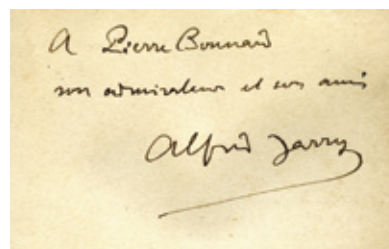 A Pierre Bonnard
son admirateur et son ami
Alfred Jarry